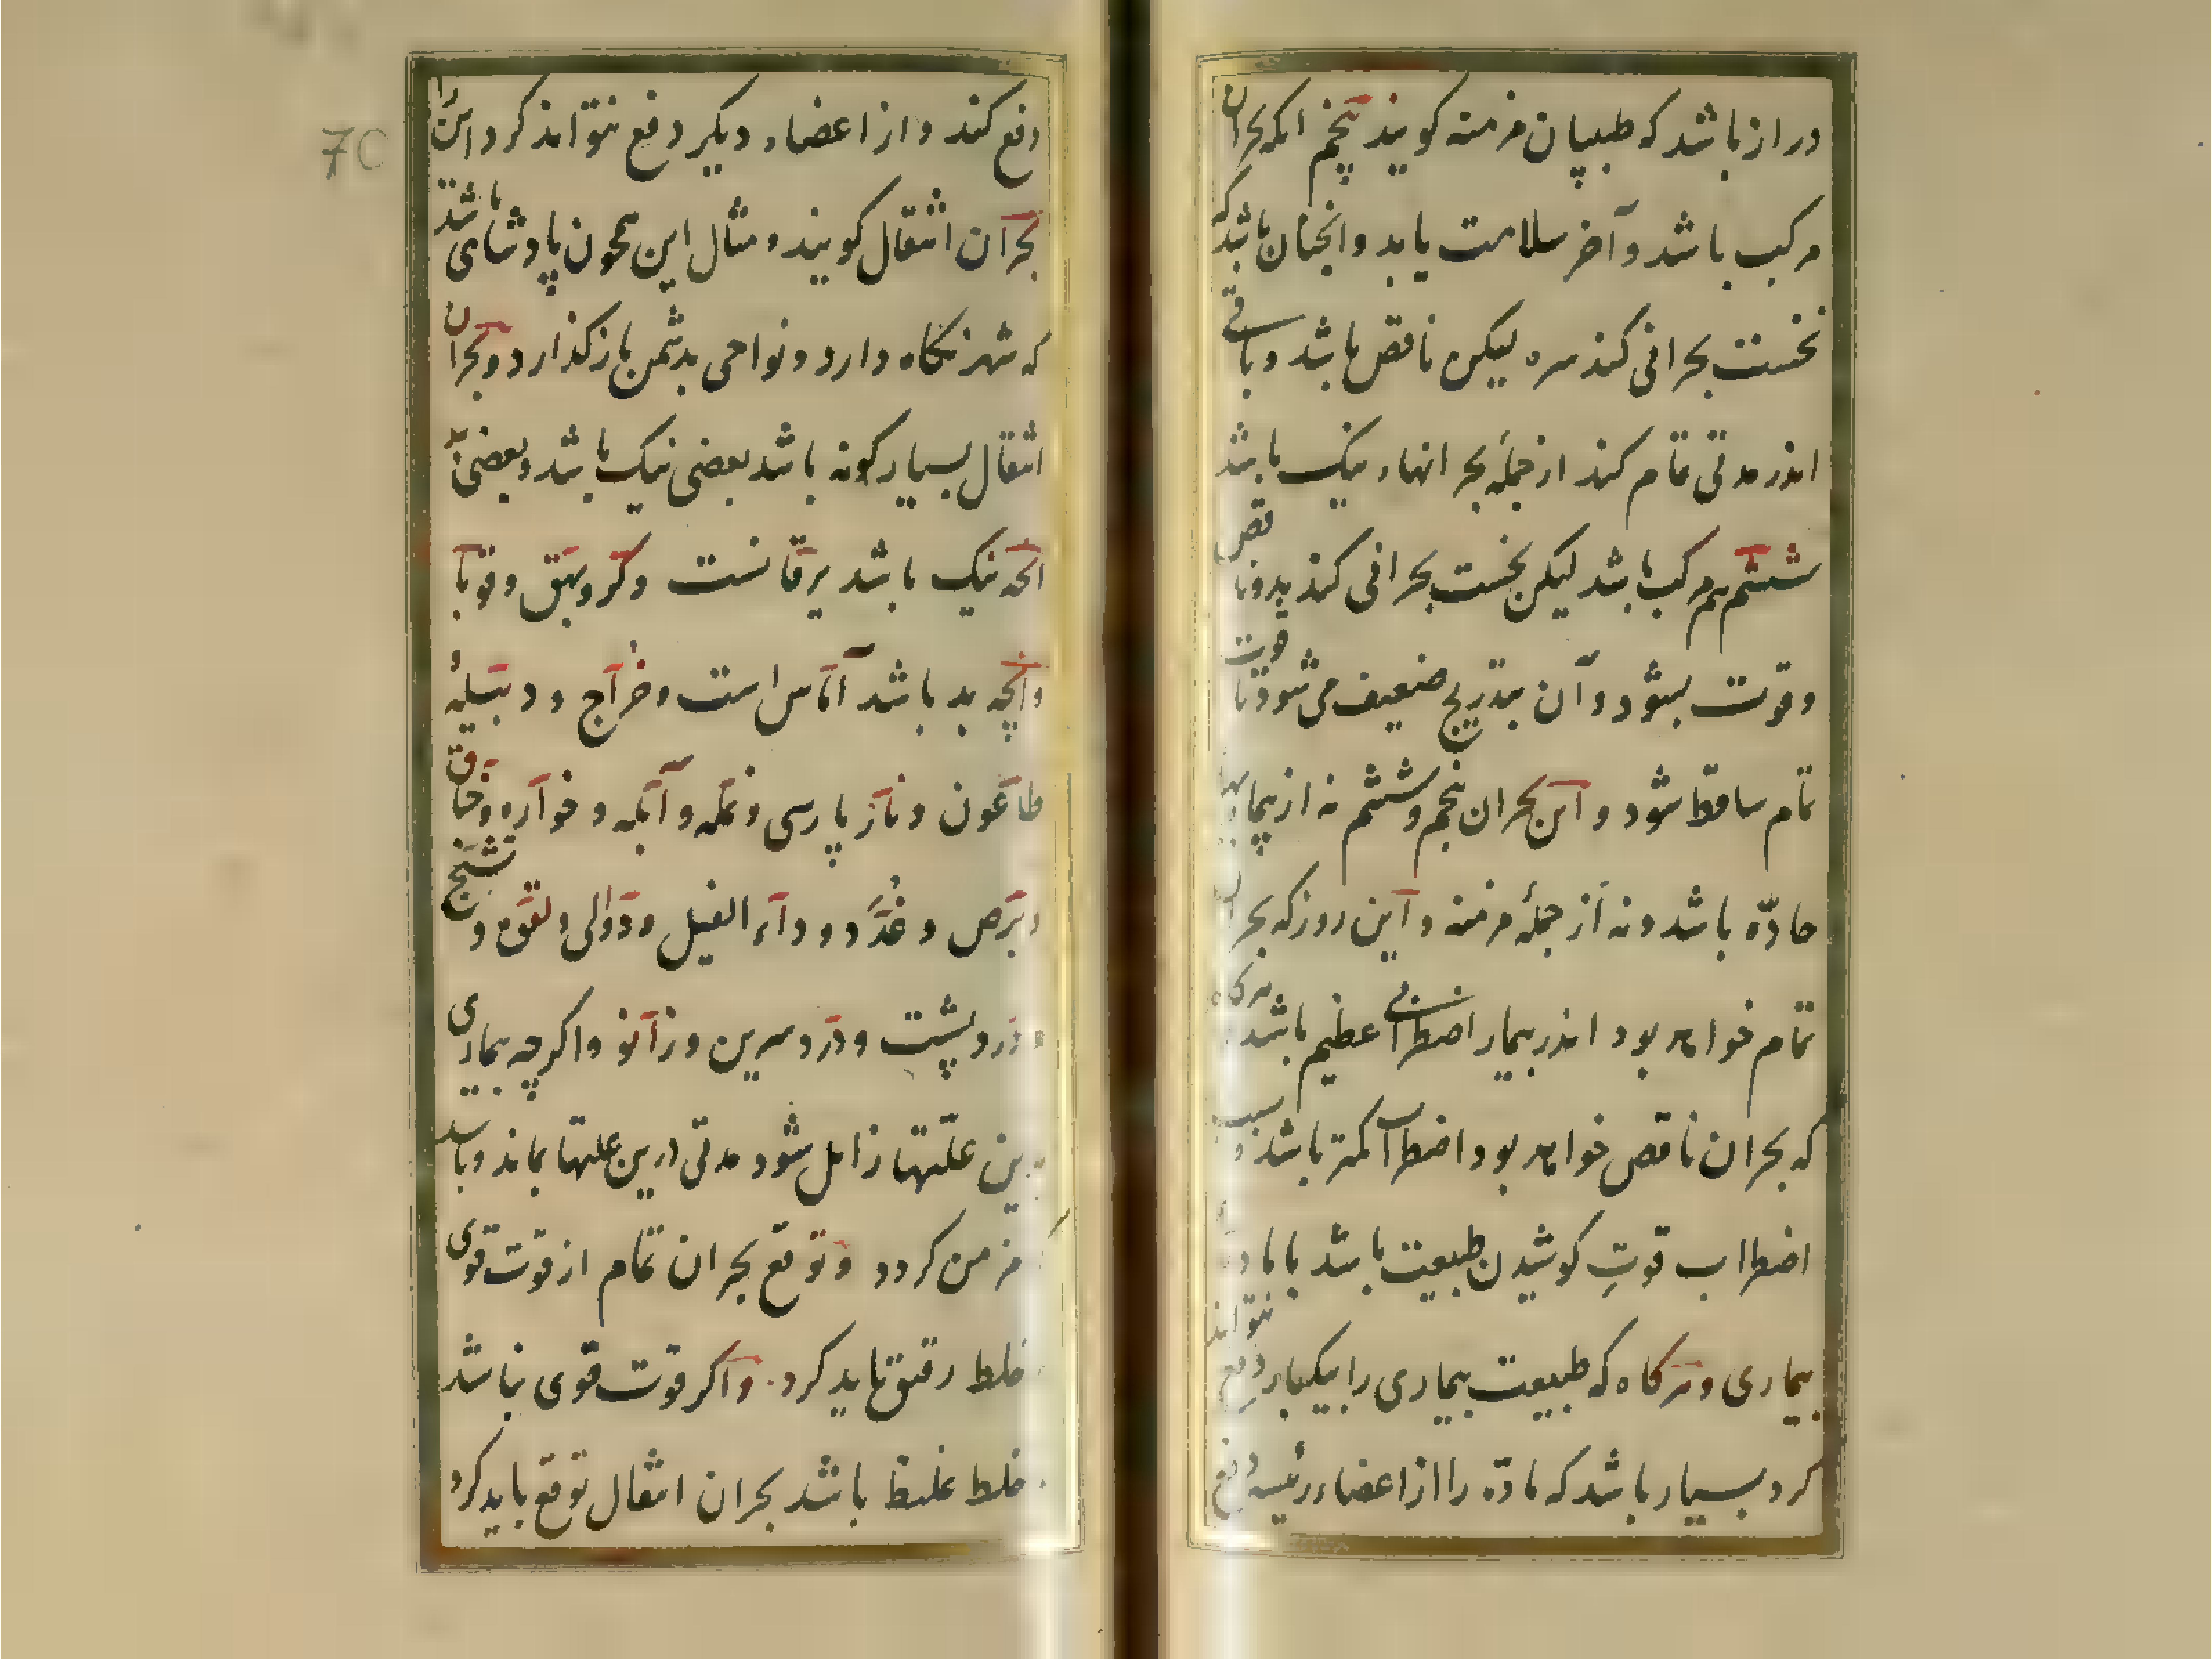 دراز باشد که طبیبان مزمنه کویند پنجم انکه بحران
مرکب باشد و آخر سلامت یابد و انچنان باشد که
نخست بحرانی کند سره لیکن ناقص باشد و باقی
اندر مدتی تمام کند از جملۀ بحرانهاء نیک باشد
ششم هم مرکب باشد لیکن نخست بحرانی کند بد و ناقص
و قوت بشود و آن بتدریج ضعیف می شود تا قوت
تمام ساقط شود و این بحران پنجم و ششم نه از بیماریها
حادّه باشد و نه از جملۀ مزمنه و این روز که بحران
تمام خواهد بود اندر بیمار اضطرابی عظیم باشد و هرکاه
که بحران ناقص خواهد بود اضطراب کمتر باشد و سبب
اضطراب قوتِ کوشیدن طبیعت باشد با مادۀ
بیماری و هرکاه که طبیعت بیماری را بیکبار دفع نتواند
کرد بسیار باشد که مادّه را از اعضاء رئیسه دفع
70
دفع کند و از اعضاء دیکر دفع نتواند کرد و این را
بحران انتقال کویند و مثال این همچون پادشاهی باشد
که شهر نکاه دارد و نواحی بدشمن بازکذارد و بحران
انتقال بسیار کونه باشد بعضی نیک باشد و بعضی بد
انچه نیک باشد یرقانست و کر و بهق و قوبا
وانچه بد باشد آماس است و خراج و دبیله
طاعون و نار پارسی و نمله و آبله و خواره و خناق
و برص و غُدَد و داء الفیل و دوالی و لقوه و تشنج
و درد پشت و درد سرین و زانو و اکرچه بیماری
بدین علّتها زایل شود مدتی درین علتها بماند و باشد
مزمن کردد و توقع بحران تمام از قوت قوی
خلط رقیق باید کرد. و اکر قوت قوی نباشد
خلط غلیظ باشد بحران انتقال توقع باید کرد